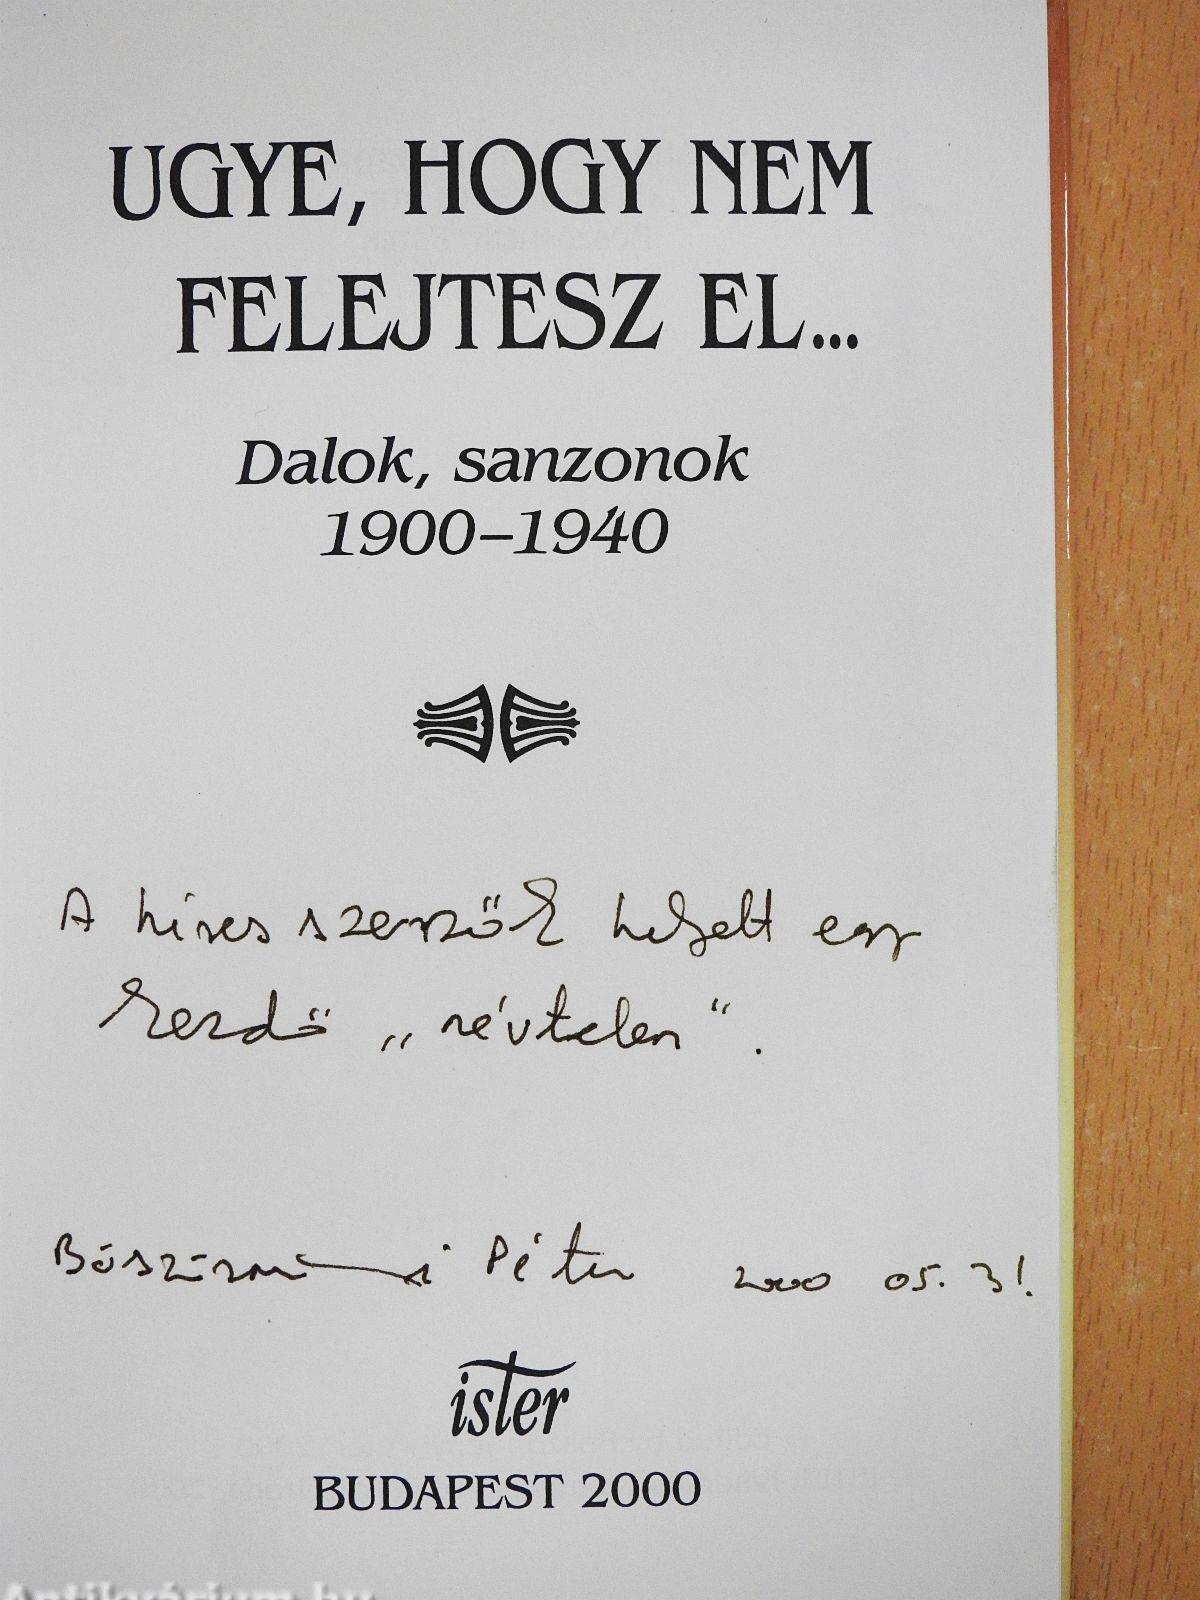 UGYE, HOGY NEM
FELEJTESZ EL...
Dalok, sanzonok
1900–1940
A híres szerzők helyett egy
kezdő „névtelen".
Böszörményi Péter 2000 05. 31.
ister
BUDAPEST 2000
Antikvárium.hu